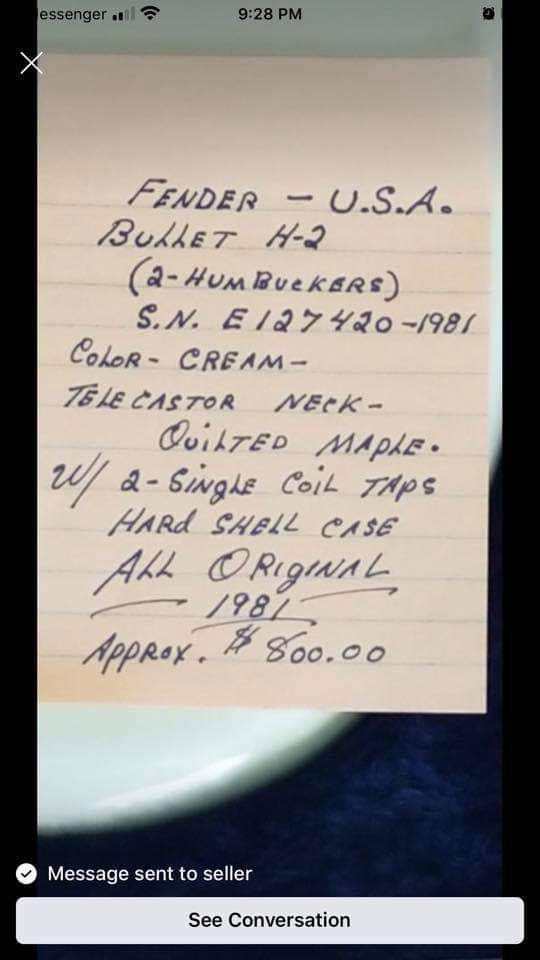 essenger 9:28 PM
FENDER - U.S.A.
BULLET H-2
(2-HUMBUCKERS)
S.N. E127420-1981
COLOR - CREAM-
TELECASTOR NECK-
QUILTED MAPLE.
W/ 2-SINGLE COIL TAPS
HARD SHELL CASE
ALL ORIGINAL
1981
APPROX. $800.00
Message sent to seller
See Conversation